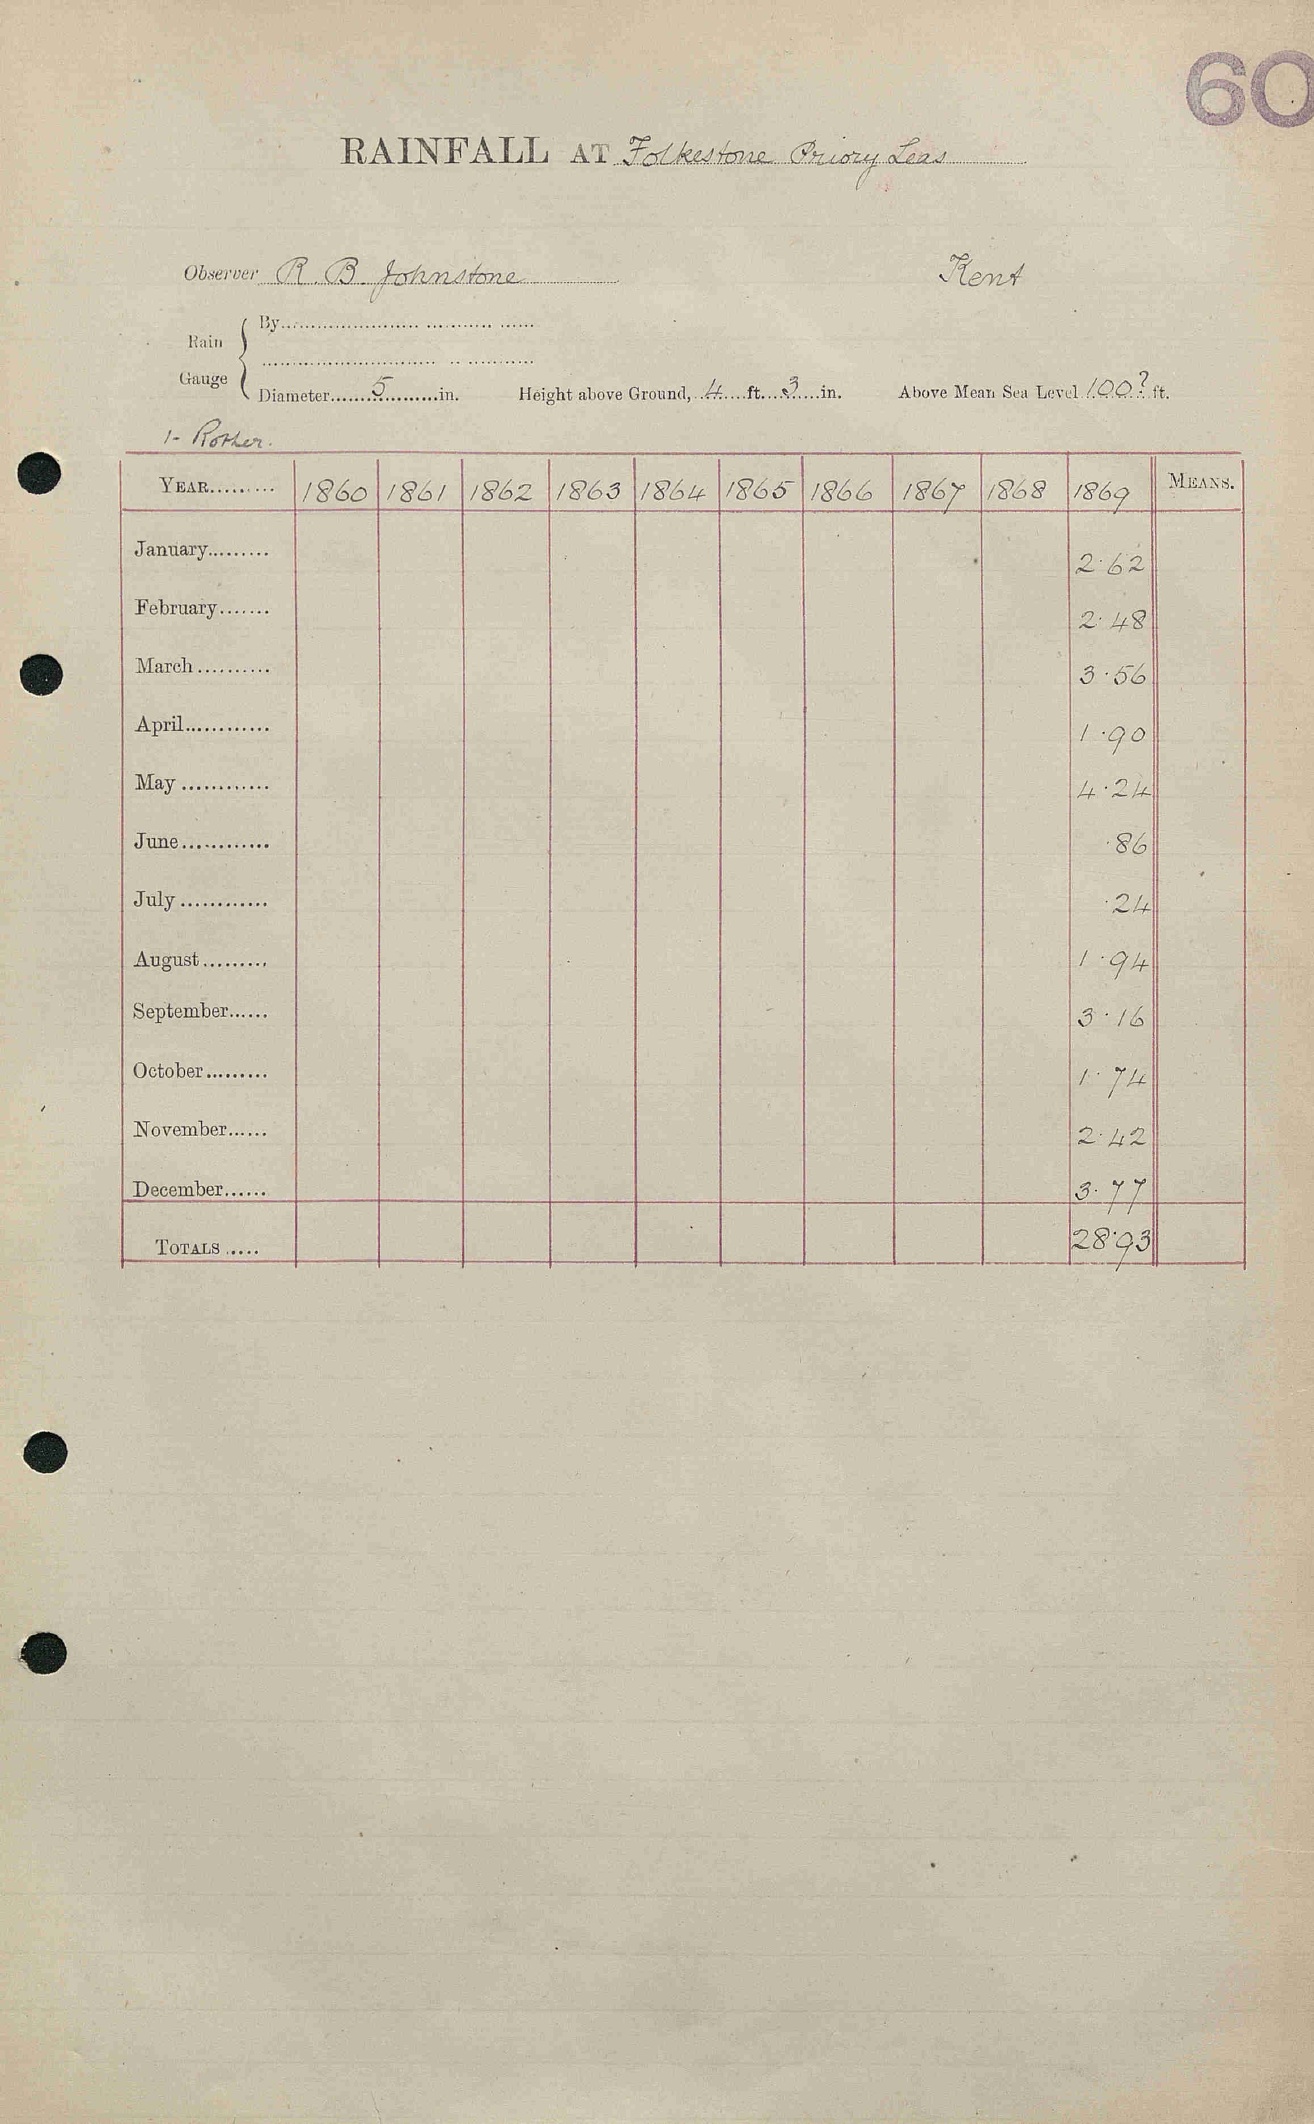 60
RAINFALL AT Folkestone Priory Leas
Observer R. B. Johnstone Kent
Rain Gauge
By
Diameter 5 in. Height above Ground, 4 ft. 3 in. Above Mean Sea Level 100? ft.
1- Rother.
YEAR......... 1860 1861 1862 1863 1864 1865 1866 1867 1868 1869 MEANS.
January......... 2.62
February....... 2.48
March.......... 3.56
April............ 1.90
May............ 4.24
June............ .86
July............ .24
August......... 1.94
September...... 3.16
October......... 1.74
November...... 2.42
December...... 3.77
TOTALS..... 28.93